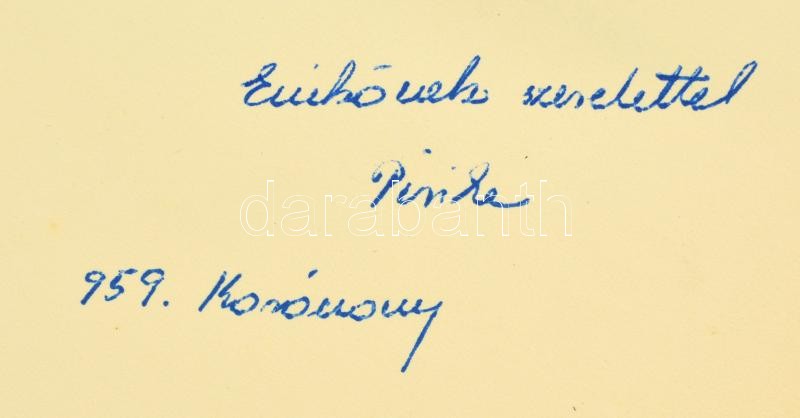 Enikőnek szeretettel
Piri
darabanth
959. Karácsony